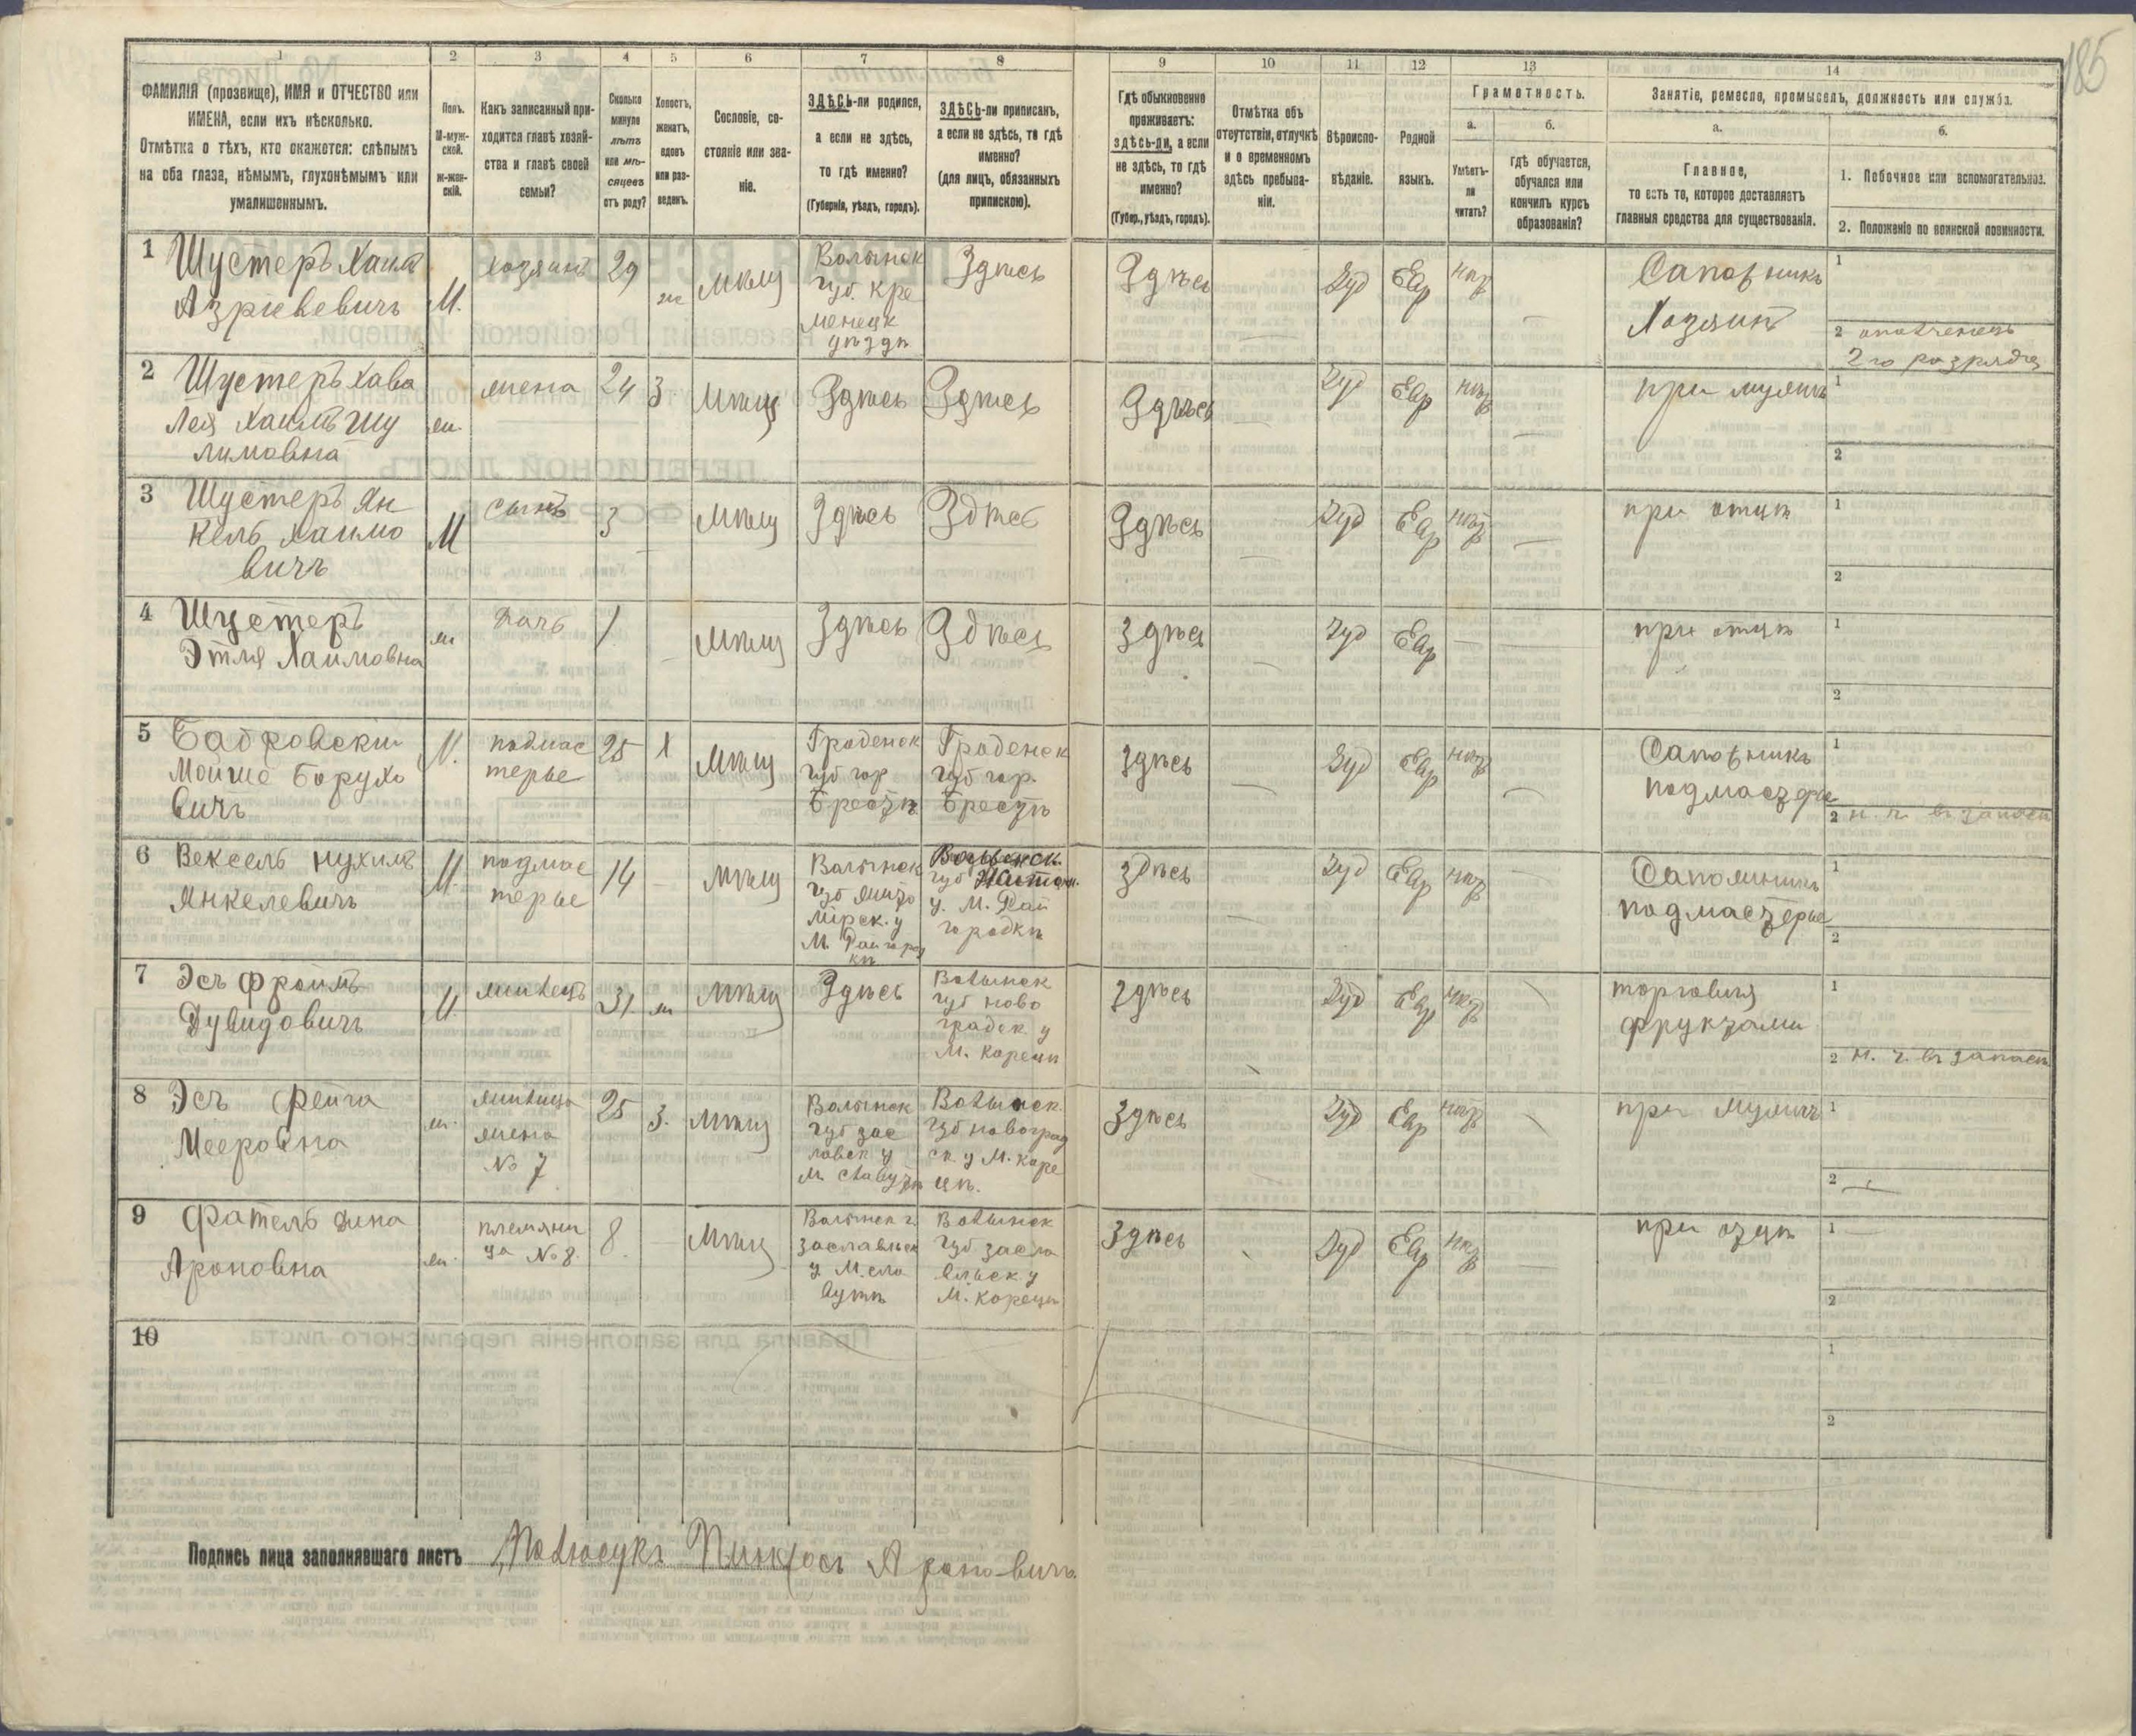 185
1 2 3 4 5 6 7 8 9 10 11 12 13 14
ФАМИЛІЯ (прозвище), ИМЯ и ОТЧЕСТВО или
ИМЕНА, если ихъ нѣсколько.
Отмѣтка о тѣхъ, кто окажется: слѣпымъ
на оба глаза, нѣмымъ, глухонѣмымъ или
умалишеннымъ.
Полъ.
М-муж-
ской.
ж-жен-
скій.
Какъ записанный при-
ходится главѣ хозяй-
ства и главѣ своей
семьи?
Сколько
минуло
лѣтъ
или мѣ-
сяцевъ
отъ роду?
Холостъ,
женатъ,
вдовъ
или раз-
веденъ.
Сословіе, со-
стояніе или зва-
ніе.
ЗДѢСЬ-ли родился,
а если не здѣсь,
то гдѣ именно?
(Губернія, уѣздъ, городъ).
ЗДѢСЬ-ли приписанъ,
а если не здѣсь, то гдѣ
именно?
(для лицъ, обязанныхъ
припискою).
Гдѣ обыкновенно
проживаетъ:
здѣсь-ли, а если
не здѣсь, то гдѣ
именно?
(Губер., уѣздъ, городъ).
Отмѣтка объ
отсутствіи, отлучкѣ
и о временномъ
здѣсь пребыва-
ніи.
Вѣроиспо-
вѣданіе.
Родной
языкъ.
Грамотность.
а.
Умѣетъ-
ли
читать?
б.
гдѣ обучается,
обучался или
кончилъ курсъ
образованія?
Занятіе, ремесло, промыселъ, должность или служба.
а.
Главное,
то есть то, которое доставляетъ
главныя средства для существованія.
б.
1. Побочное или вспомогательное.
2. Положеніе по воинской повинности.
1 Шустеръ Хаимъ
Азріелевичъ
М.
хозяинъ
29
ж
Мѣщ
Волынск
губ. Кре
менецк
уѣздѣ
Здѣсь
Здѣсь
Іуд
Евр
Сапожникъ
Хозяинъ
1
2 ополченецъ
2го разряда
2 Шустеръ Хава
Лея Хаимъ Шу
лимовна
ж.
жена
24
З
Мѣщ
Здѣсь
Здѣсь
Здѣсь
Іуд
Евр
при мужѣ
1
2
3 Шустеръ Ян
кель Хаимо
вичъ
М
сынъ
3
Мѣщ
Здѣсь
Здѣсь
Здѣсь
Іуд
Евр
при отцѣ
1
2
4 Шустеръ
Этля Хаимовна
ж
Дочь
1
Мѣщ
Здѣсь
Здѣсь
Здѣсь
Іуд
Евр
при отцѣ
1
2
5
Мойше Борухо
вичъ
М.
подмас
терье
25
Х
Мѣщ
Гроденск
губ гор
Брестѣ
Гроденск
губ гор.
Брестѣ
Здѣсь
Іуд
Евр
Сапожникъ
подмастерье
1
2 н. ч. въ запасѣ
6 Вексель Нухимъ
Янкелевичъ
М.
подмас
терье
14
Мѣщ
Волынск
губ Жито
мірск. у
М. Райгород
кѣ
Волынск.
губ Житом.
у. М. Рай
городкѣ
Здѣсь
Іуд
Евр
Сапожникъ
подмастерье
1
2
7 Эсъ Фроимъ
Дувидовичъ
М.
жилецъ
31.
ж
Мѣщ
Здѣсь
Волынск
губ ново
градск у
М. Корецѣ
Здѣсь
Іуд
Евр
торговля
фруктами
1
2 н. ч. въ запасѣ
8 Эсъ Фейга
Мееровна
ж.
жилица
жена
№ 7
25
З.
Мѣщ
Волынск
губ зас
лавск у
М. Славутѣ
Волынск.
губ новоград
ск. у М. Коре
цѣ.
Здѣсь
Іуд
Евр
при мужѣ
1
2
9 Фатель Дина
Ароновна
ж.
племянни
ца № 8.
8.
Мѣщ
Волынск г.
заславльск
у М. сла
вутѣ
Волынск
губ засла
вльск у
М. Корецѣ
Здѣсь
Іуд
Евр
при отцѣ
1
2
10
1
2
Подпись лица заполнявшаго листъ Пинхось Ароновичъ